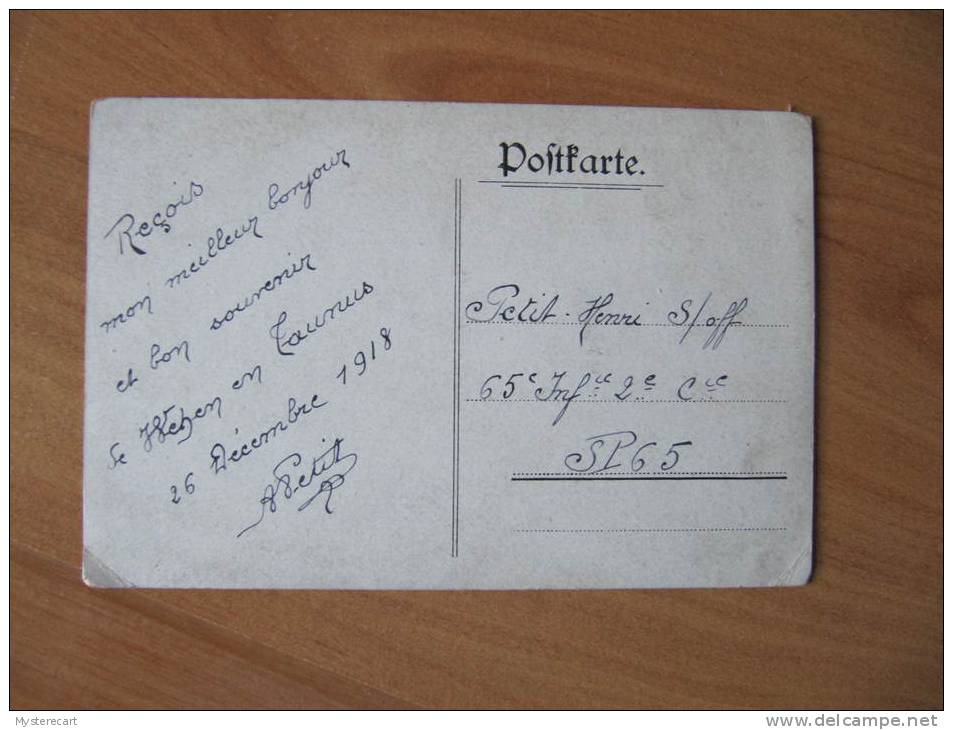 Postkarte.
Reçois
mon meilleur bonjour
et bon souvenir
de Wehen en Taunus
26 Décembre 1918
A Petit
Petit-Henri S/off
65e Infie 2e Cie
SP65
Mysterecart
www.delcampe.net